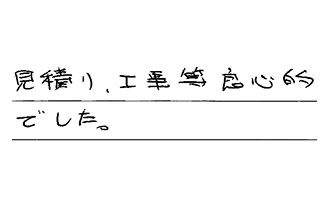 見積り、工事等良心的
でした。